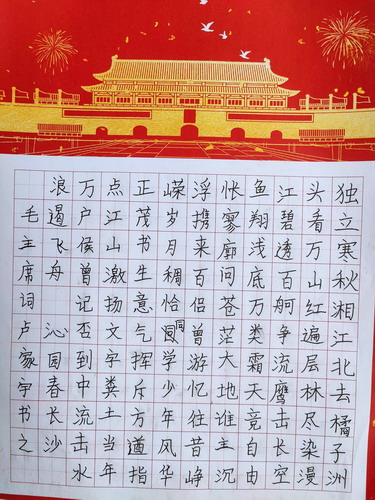 独立寒秋湘江北去橘子洲
头看万山红遍层林尽染漫
江碧透百舸争流鹰击长空
鱼翔浅底万类霜天竞自由
怅寥廓问苍茫大地谁主沉
浮携来百侣曾游忆往昔峥
嵘岁月稠恰同学少年风华
正茂书生意气挥斥方遒指
点江山激扬文字粪土当年
万户侯曾记否到中流击水
浪遏飞舟 沁园春长沙
毛主席词卢家宇书之